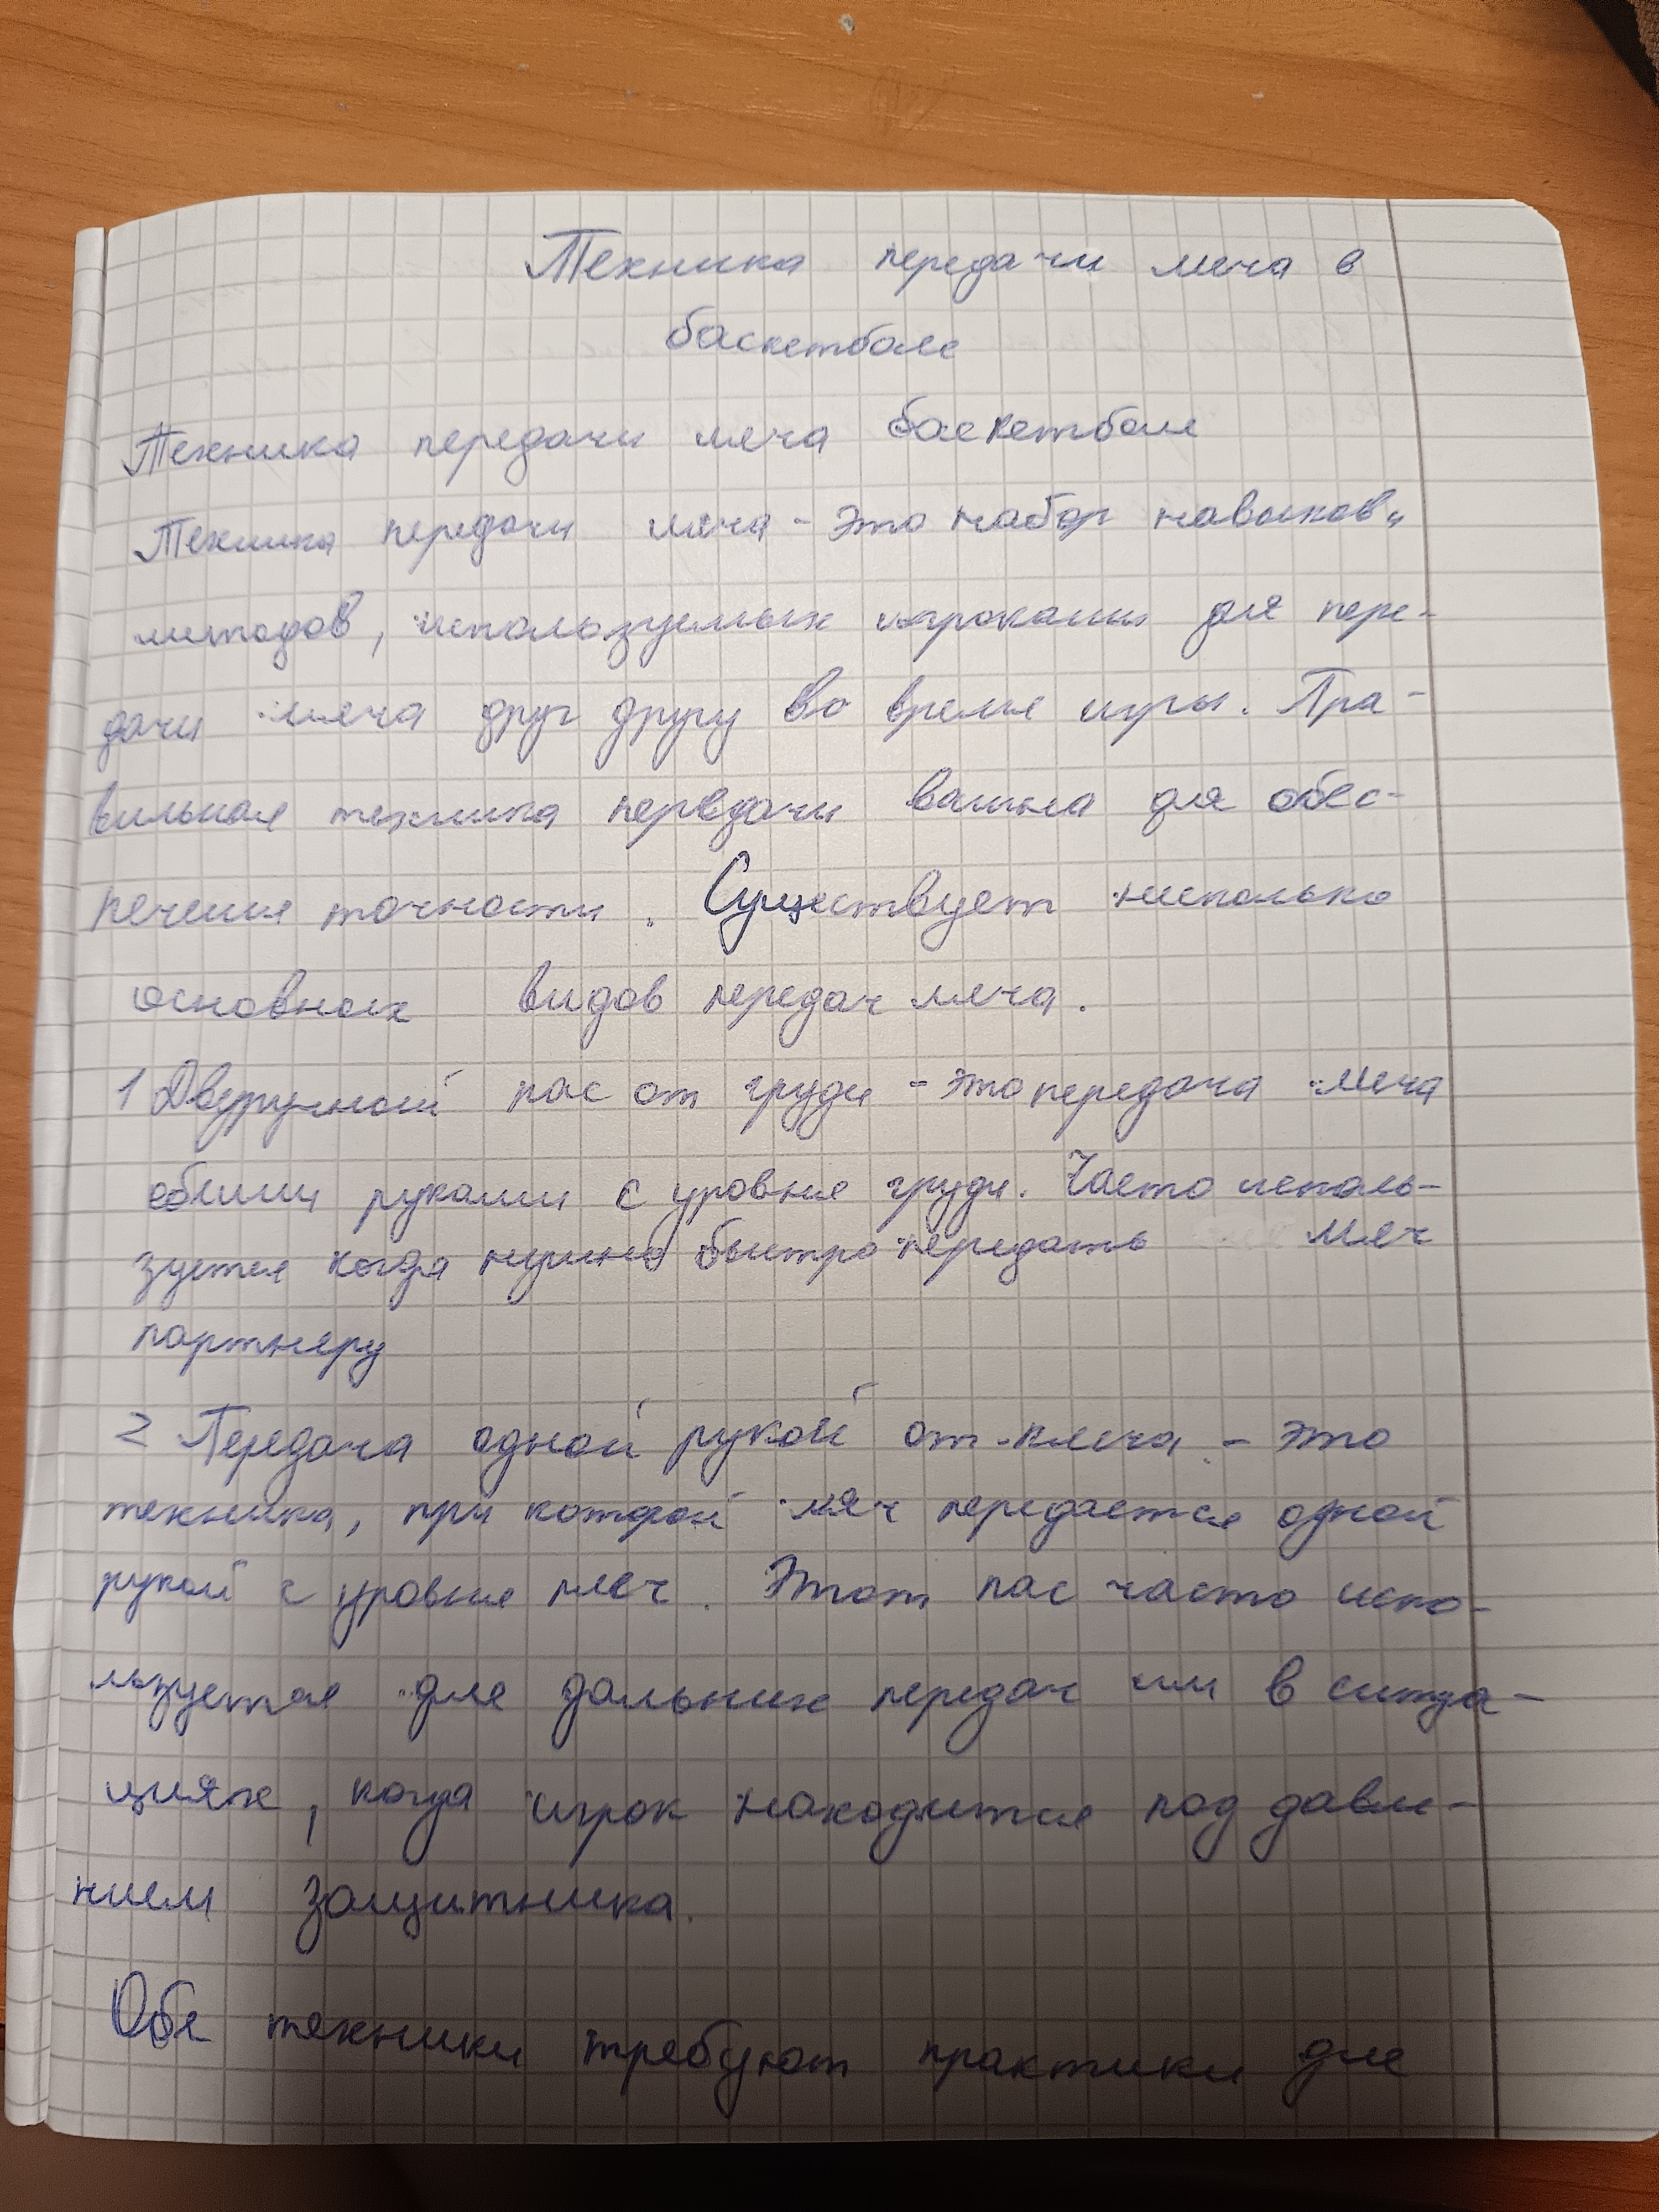 Техника передачи мяча в
баскетболе
Техника передачи мяча баскетболе
Техника передачи мяча - это набор навыков и
методов, используемых игроками для пере-
дачи мяча друг другу во время игры. Пра-
вильная техника передачи важна для обес-
печения точности. Существует несколько
основных видов передач мяча.
1 Двуручный пас от груди - это передача мяча
обеими руками с уровня груди. Часто исполь-
зуется когда нужно быстро передать мяч
партнеру
2 Передача одной рукой от плеча - это
техника, при которой мяч передается одной
рукой с уровня плеч. Этот пас часто испо-
льзуется для дальних передач или в ситуа-
циях, когда игрок находится под давле-
нием защитника.
Обе техники требуют практики для